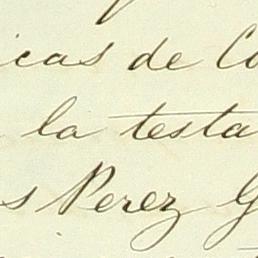 icas de Co
la testa
s Perez G